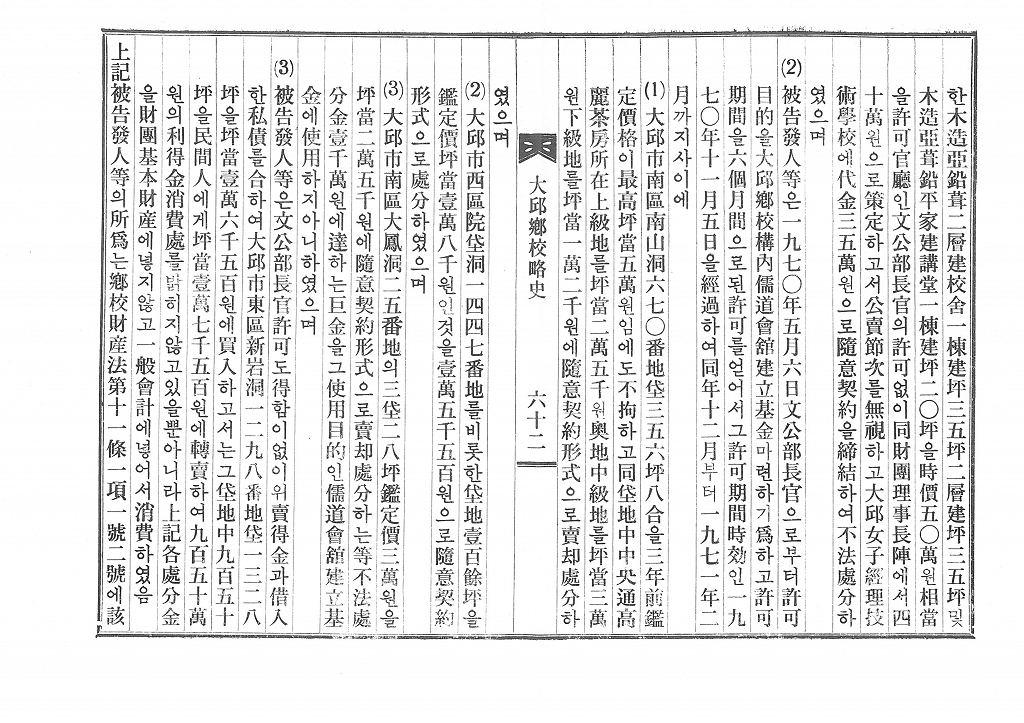 한木造亞鉛葺二層建校舍一棟建坪三五坪二層建坪三五坪및
木造亞葺鉛平家建講堂一棟建坪二〇坪을時價五〇萬원相當
을許可官廳인文公部長官의許可없이同財團理事長陣에서四
十萬원으로策定하고서公賣節次를無視하고大邱女子經理技
術學校에代金三五萬원으로隨意契約을締結하여不法處分하
였으며
(2) 被告發人等은一九七〇年五月六日文公部長官으로부터許可
目的을大邱鄕校構內儒道會舘建立基金마련하기爲하고許可
期間을六個月間으로된許可를얻어서그許可期間時効인一九
七〇年十一月五日을經過하여同年十二月부터一九七一年二
月까지사이에
(1) 大邱市南區南山洞六七〇番地垈三五六坪八合을三年前鑑
定價格이最高坪當五萬원임에도不拘하고同垈地中中央通高
麗茶房所在上級地를坪當二萬五千원奧地中級地를坪當三萬
원下級地를坪當一萬二千원에隨意契約形式으로賣却處分하
大邱鄕校略史 六十二
였으며
(2) 大邱市西區院垈洞一四四七番地를비롯한垈地壹百餘坪을
鑑定價坪當壹萬八千원인것을壹萬五千五百원으로隨意契約
形式으로處分하였으며
(3) 大邱市南區大鳳洞二五番地의三垈二八坪鑑定價三萬원을
坪當二萬五千원에隨意契約形式으로賣却處分하는等不法處
分金壹千萬원에達하는巨金을그使用目的인儒道會舘建立基
金에使用하지아니하였으며
(3) 被告發人等은文公部長官許可도得함이없이위賣得金과借入
한私債를合하여大邱市東區新岩洞一二九八番地垈一三二八
坪을坪當壹萬六千五百원에買入하고서는그垈地中九百五十
坪을民間人에게坪當壹萬七千五百원에轉賣하여九百五十萬
원의利得金消費處를밝히지않고있을뿐아니라上記各處分金
을財團基本財産에넣지않고一般會計에넣어서消費하였음
上記被告發人等의所爲는鄕校財産法第十一條一項一號二號에該